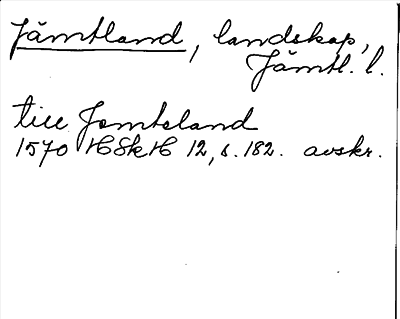 Jämtland, landskap,
Jämtl. l.
till Jemteland
1570 HSkH 12, s. 182. avskr.